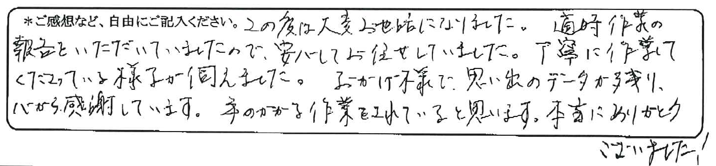 *ご感想など、自由にご記入ください。この度は大変お世話になりました。適時作業の
報告をいただいていましたので、安心してお任せしていました。丁寧に作業して
くださっている様子が伺えました。おかげ様で、思い出のデータが残り、
心から感謝しています。手のかかる作業をされていると思います。本当にありがとう
ございました!